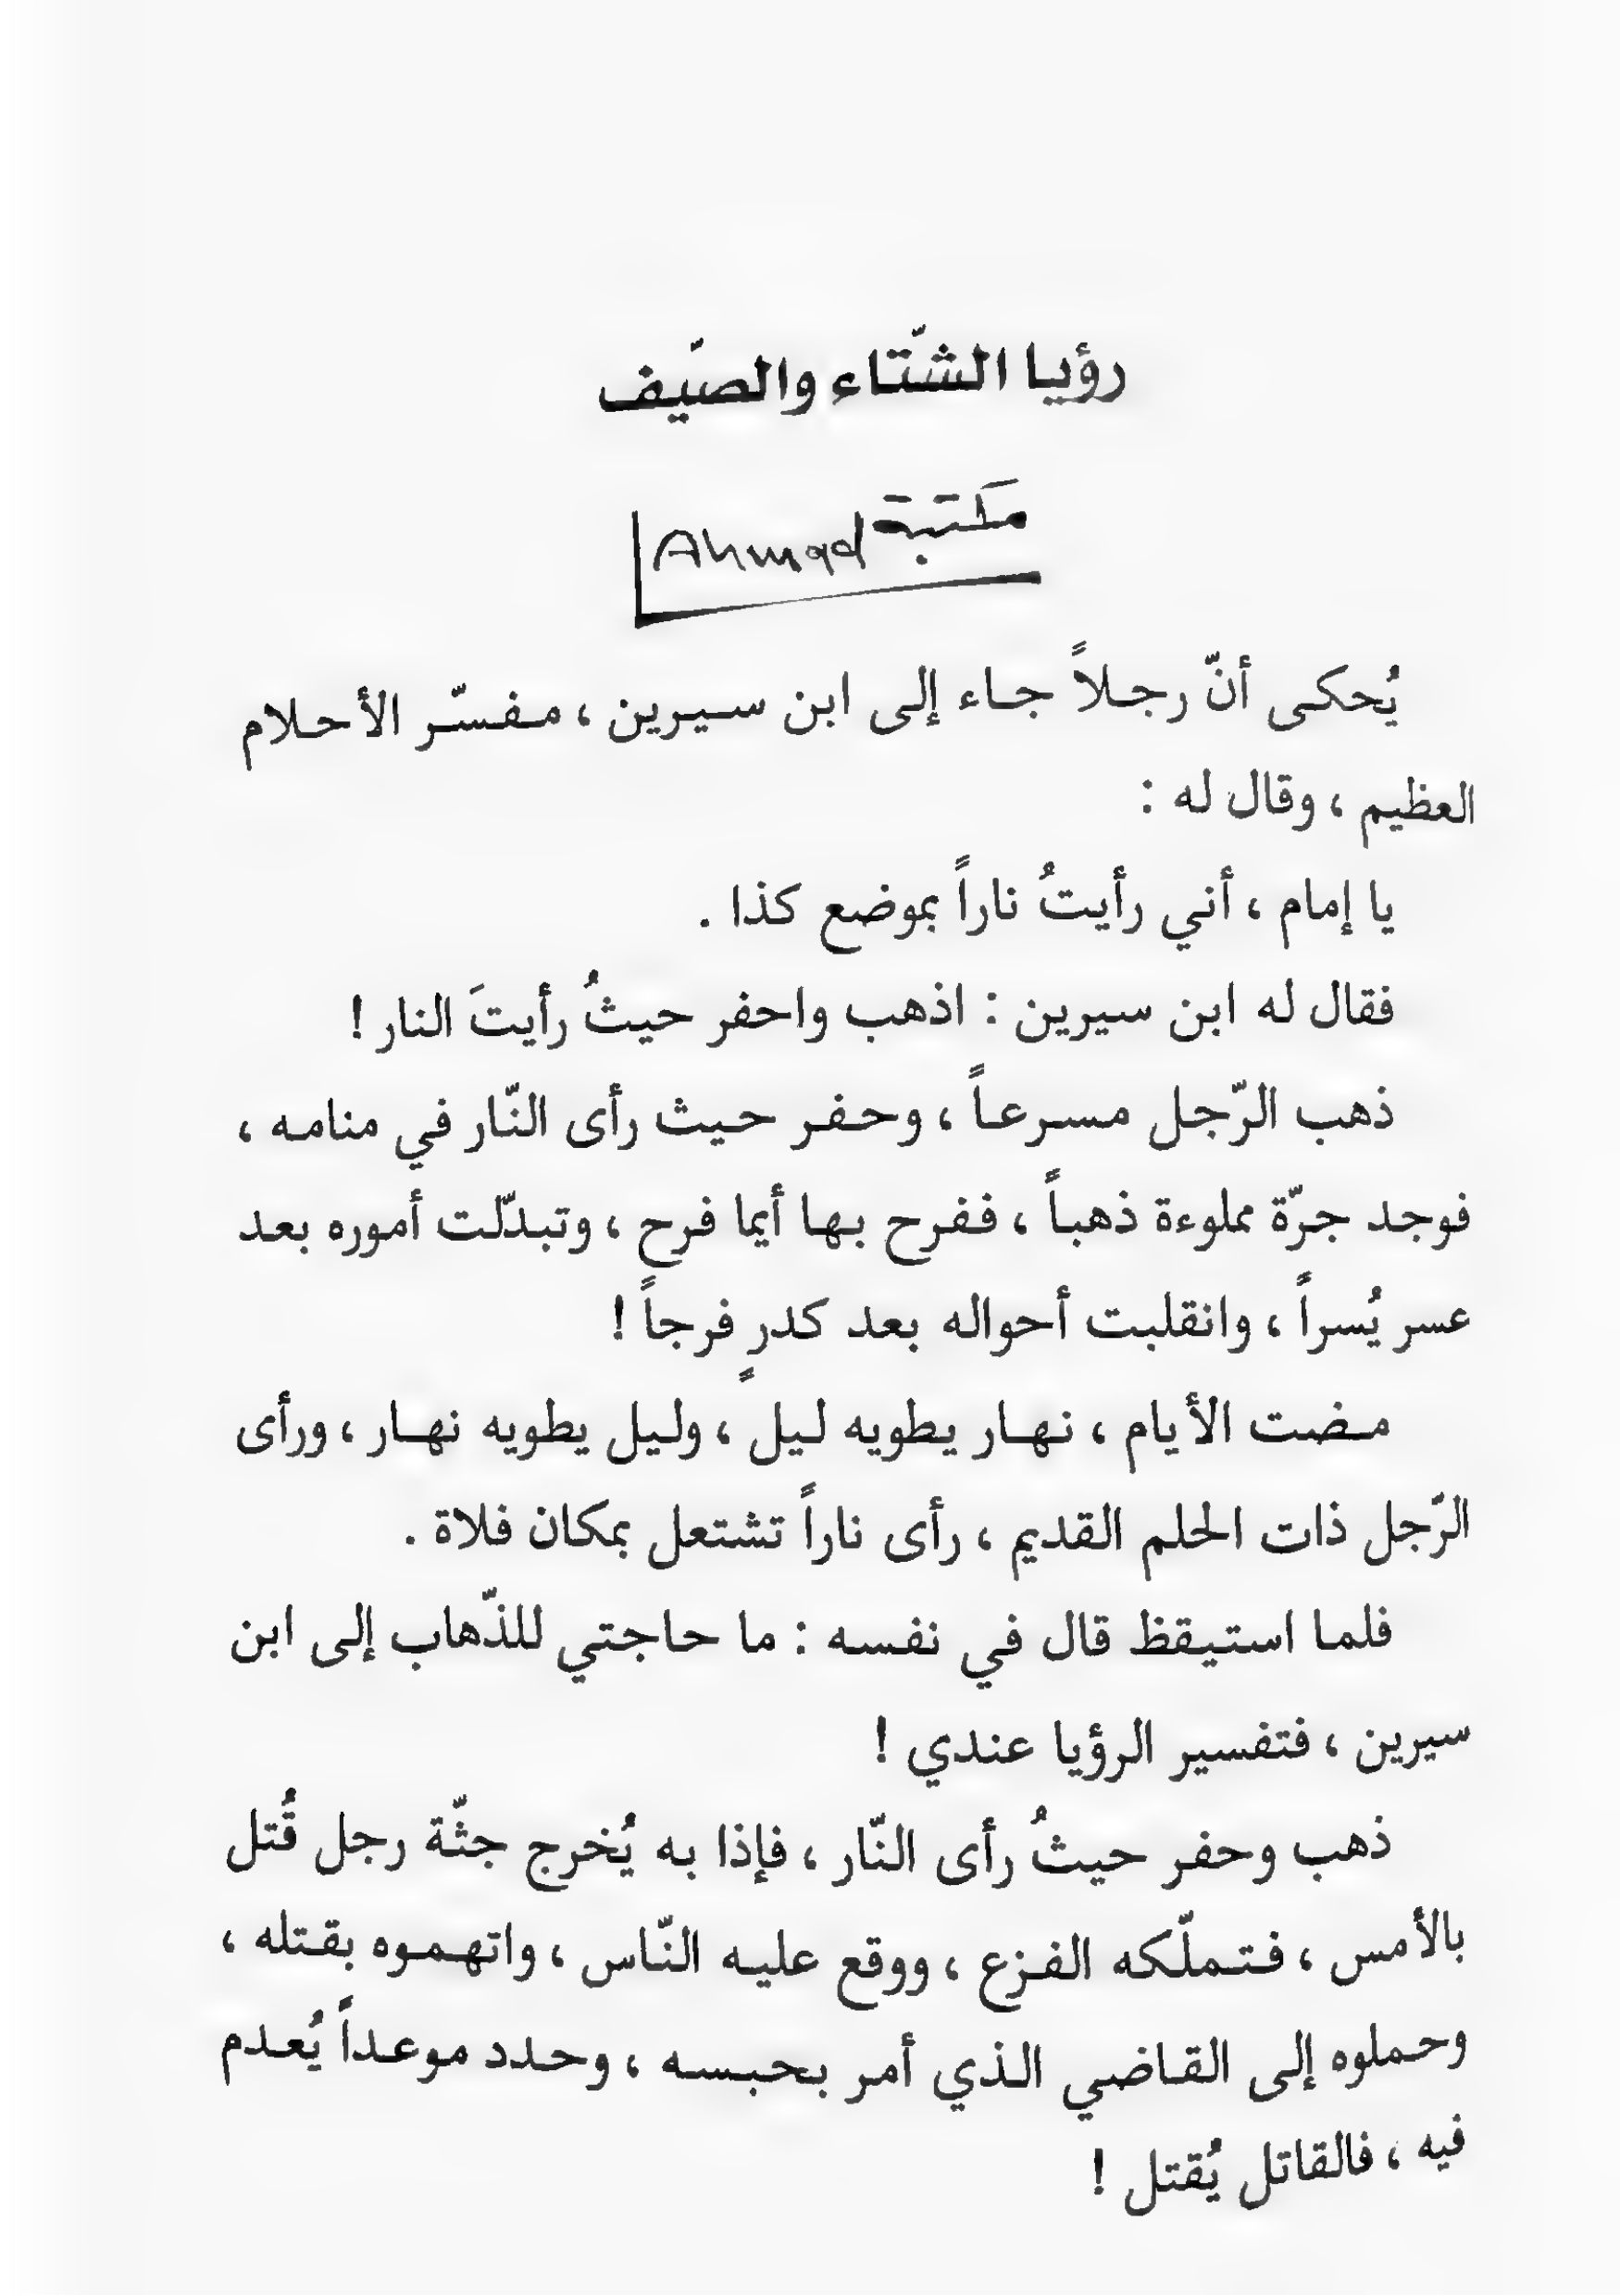 رؤيا الشّتاء والصّيف
مكتبة Ahmad
يُحكى أنّ رجلاً جاء إلى ابن سيرين ، مفسّر الأحلام
العظيم ، وقال له :
يا إمام ، أني رأيتُ ناراً بموضع كذا .
فقال له ابن سيرين : اذهب واحفر حيثُ رأيتَ النار !
ذهب الرّجل مسرعاً ، وحفر حيث رأى النّار في منامه ،
فوجد جرّة مملوءة ذهباً ، ففرح بها أيما فرح ، وتبدّلت أموره بعد
عسر يُسراً ، وانقلبت أحواله بعد كدرٍ فرجاً !
مضت الأيام ، نهار يطويه ليل ، وليل يطويه نهار ، ورأى
الرّجل ذات الحلم القديم ، رأى ناراً تشتعل بمكان فلاة .
فلما استيقظ قال في نفسه : ما حاجتي للذّهاب إلى ابن
سيرين ، فتفسير الرؤيا عندي !
ذهب وحفر حيثُ رأى النّار ، فإذا به يُخرج جثّة رجل قُتل
بالأمس ، فتملّكه الفزع ، ووقع عليه النّاس ، واتهموه بقتله ،
وحملوه إلى القاضي الذي أمر بحبسه ، وحدد موعداً يُعدم
فيه ، فالقاتل يُقتل !